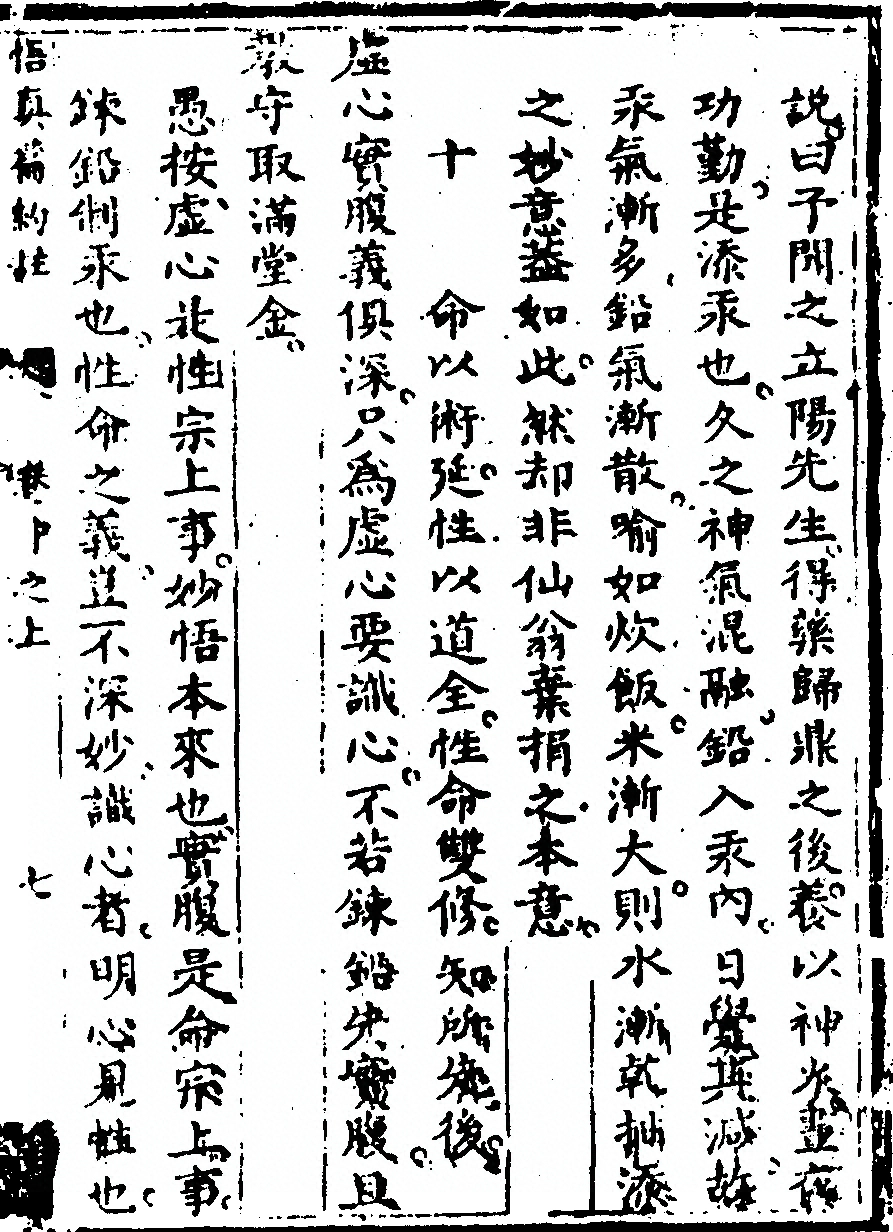 說曰予聞之立陽先生得藥歸鼎之後養以神火晝夜
功勤是添汞也久之神氣混融鉛入汞內日覺其減
汞氣漸多鉛氣漸散喻如炊飯米漸大則水漸乾抽添
之妙意蓋如此然却非仙翁葉揖之本意
十 命以術延性以道全性命雙修知所先後
虛心實腹義俱深只爲虛心要識心不若鍊鉛先實腹且
敎守取滿堂金
愚按虛心是性宗上事妙悟本來也實腹是命宗上事
鍊鉛制汞也性命之義豈不深妙識心者明心見性也
悟真篇約註 卷中之上 七